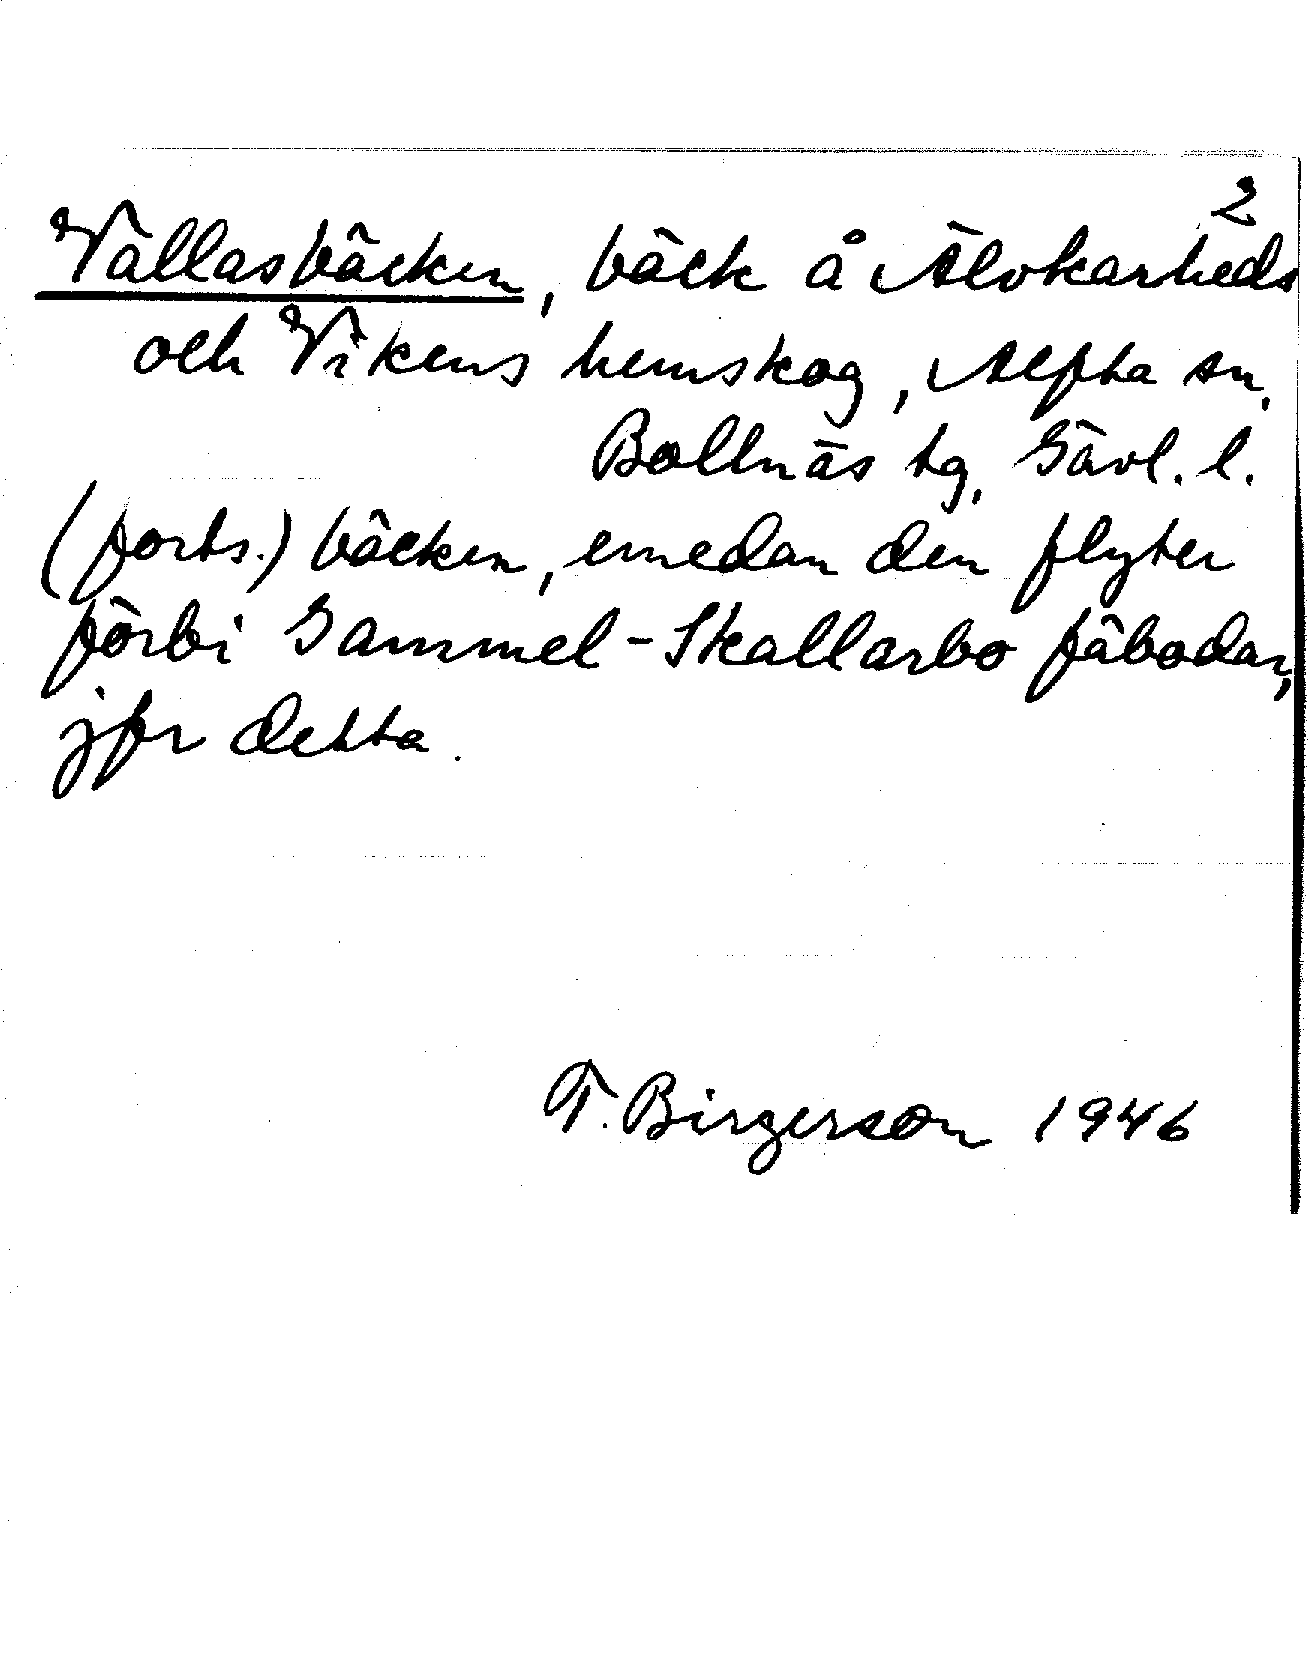 2
Vallasbäcken, bäck å Älvkarheds
och Vikens hemskog, Alfta sn,
Bollnäs tg, Gävl. l.
(forts.) bäcken, emedan den flyter
förbi Gammel-Skallarbo fäbodar,
jfr detta.
T. Birgerson 1946